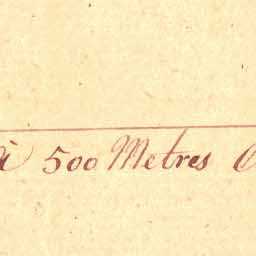 à 500 Metres